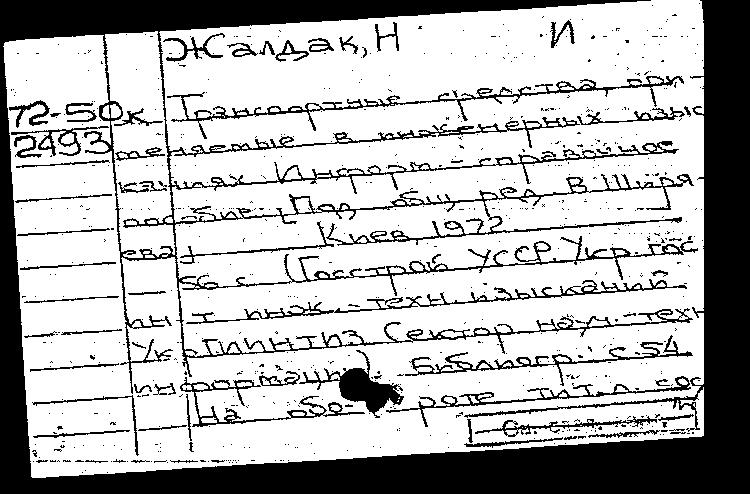 Жалдак, Н И
72-50к Транспортные средства, при-
2493 меняемые в инженерных изыс
каниях Информ.-справочное
пособие. [Под общ ред В Ширя-
ева]
Киев, 1972
56 с (Госстрой УССР. Укр. гос
ин-т инж.-техн. изысканий
УкрГИИНТИЗ Сектор науч.-техн
информации) Библиогр.: с.54
На обо- роте тит. л. сос
См. след. карт.